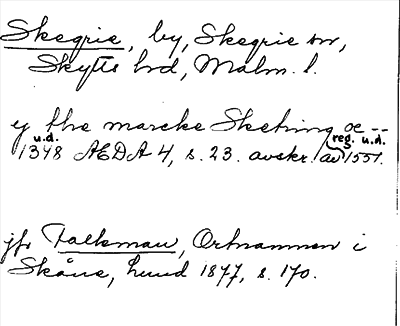 Skegrie, by, Skegrie sn,
Skytts hrd, Malm. l.
y thre marcke Sketring oc --
u.d. reg. u.d.
1348 AEDA 4, s. 23. avskr. av 1551.
jfr Falkman, Ortnamnen i
Skåne, Lund 1877, s. 170.